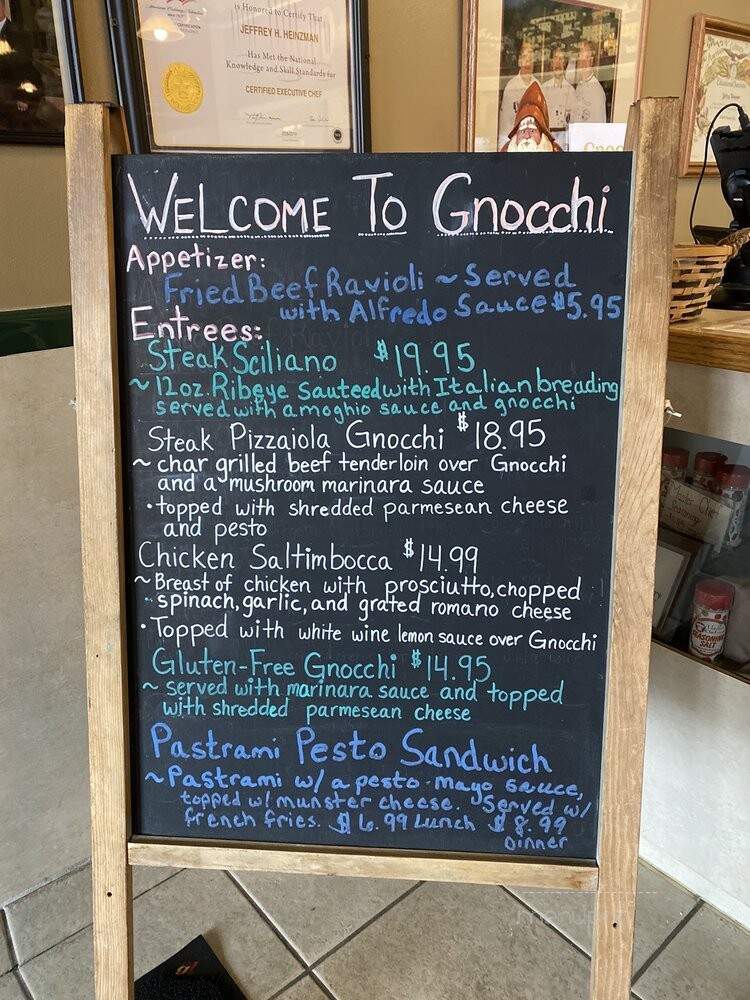 is Honored to Certify That
JEFFREY H. HEINZMAN
Has Met the National
Knowledge and Skill Standards for
CERTIFIED EXECUTIVE CHEF
WELCOME To Gnocchi
Appetizer:
Fried Beef Ravioli ~ Served
with Alfredo Sauce $5.95
Entrees:
Steak Sciliano $19.95
~ 12oz. Ribeye sauteed with Italian breading
served with amoghio sauce and gnocchi
Steak Pizzaiola Gnocchi $18.95
~ char grilled beef tenderloin over Gnocchi
and a mushroom marinara sauce
• topped with shredded parmesean cheese
and pesto
Chicken Saltimbocca $14.99
~ Breast of chicken with prosciutto, chopped
spinach, garlic, and grated romano cheese
• Topped with white wine lemon sauce over Gnocchi
Gluten-Free Gnocchi $14.95
~ served with marinara sauce and topped
with shredded parmesean cheese
Pastrami Pesto Sandwich
~ Pastrami w/ a pesto-mayo sauce,
topped w/ munster cheese. Served w/
french fries. $6.99 Lunch $8.99
Dinner
SEASONING
SALT